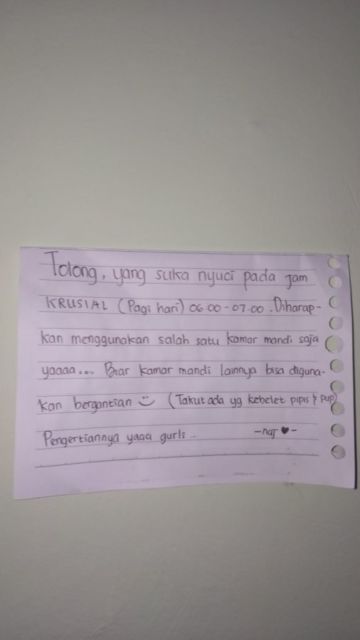 Tolong, yang suka nyuci pada jam
KRUSIAL (Pagi hari) 06.00 - 07.00. Diharap-
kan menggunakan salah satu kamar mandi saja
yaaaa... Biar kamar mandi lainnya bisa diguna-
kan bergantian (Takut ada yg kebelet pipis & pup)
Pengertiannya yaaa gurls..
-naj ♥-